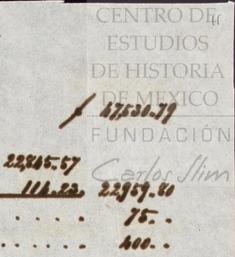 CENTRO DE
ESTUDIOS
DE HISTORIA
DE MEXICO
FUNDACIÓN
Carlos Slim
$ 47,530.79
22,845.57
114.23. 22959.80
. . . . 75. .
. . . . . 400. .